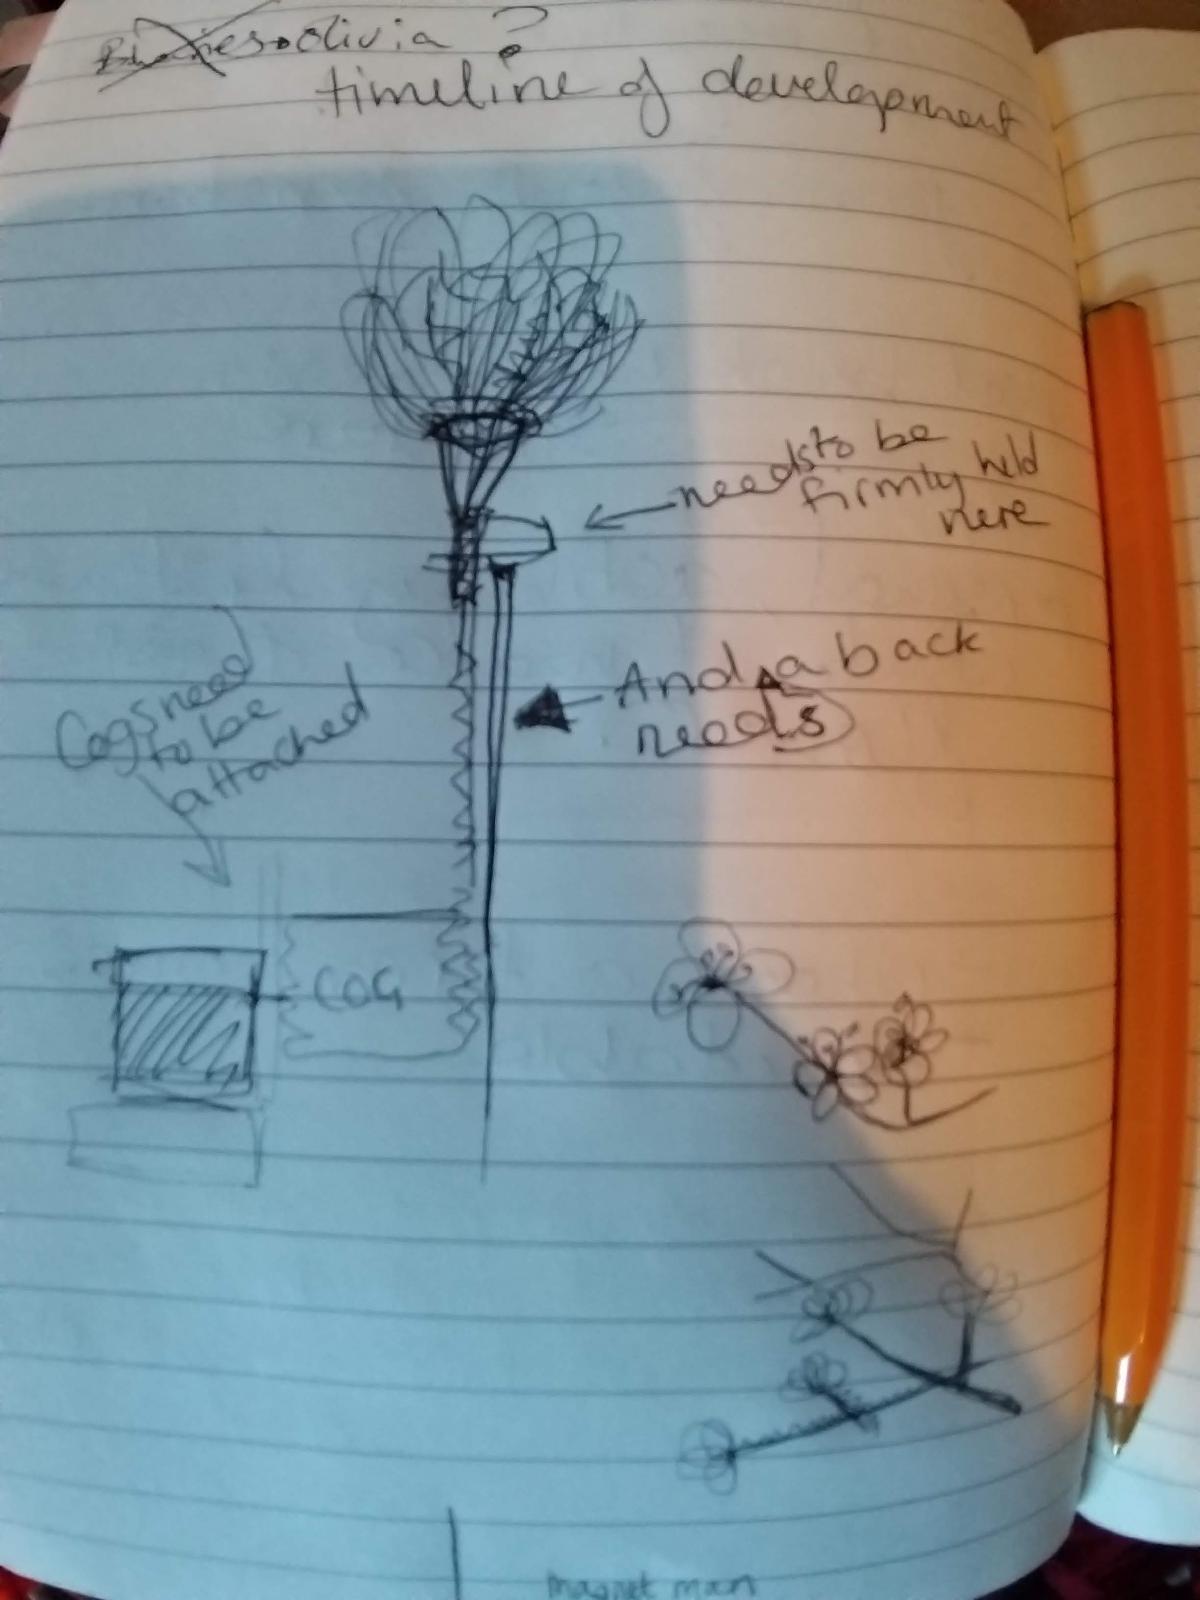 olivia ?
timeline of development
needs to be
firmly held
here
And a back
needs
Cogs need
to be
attached
COG
magnet man